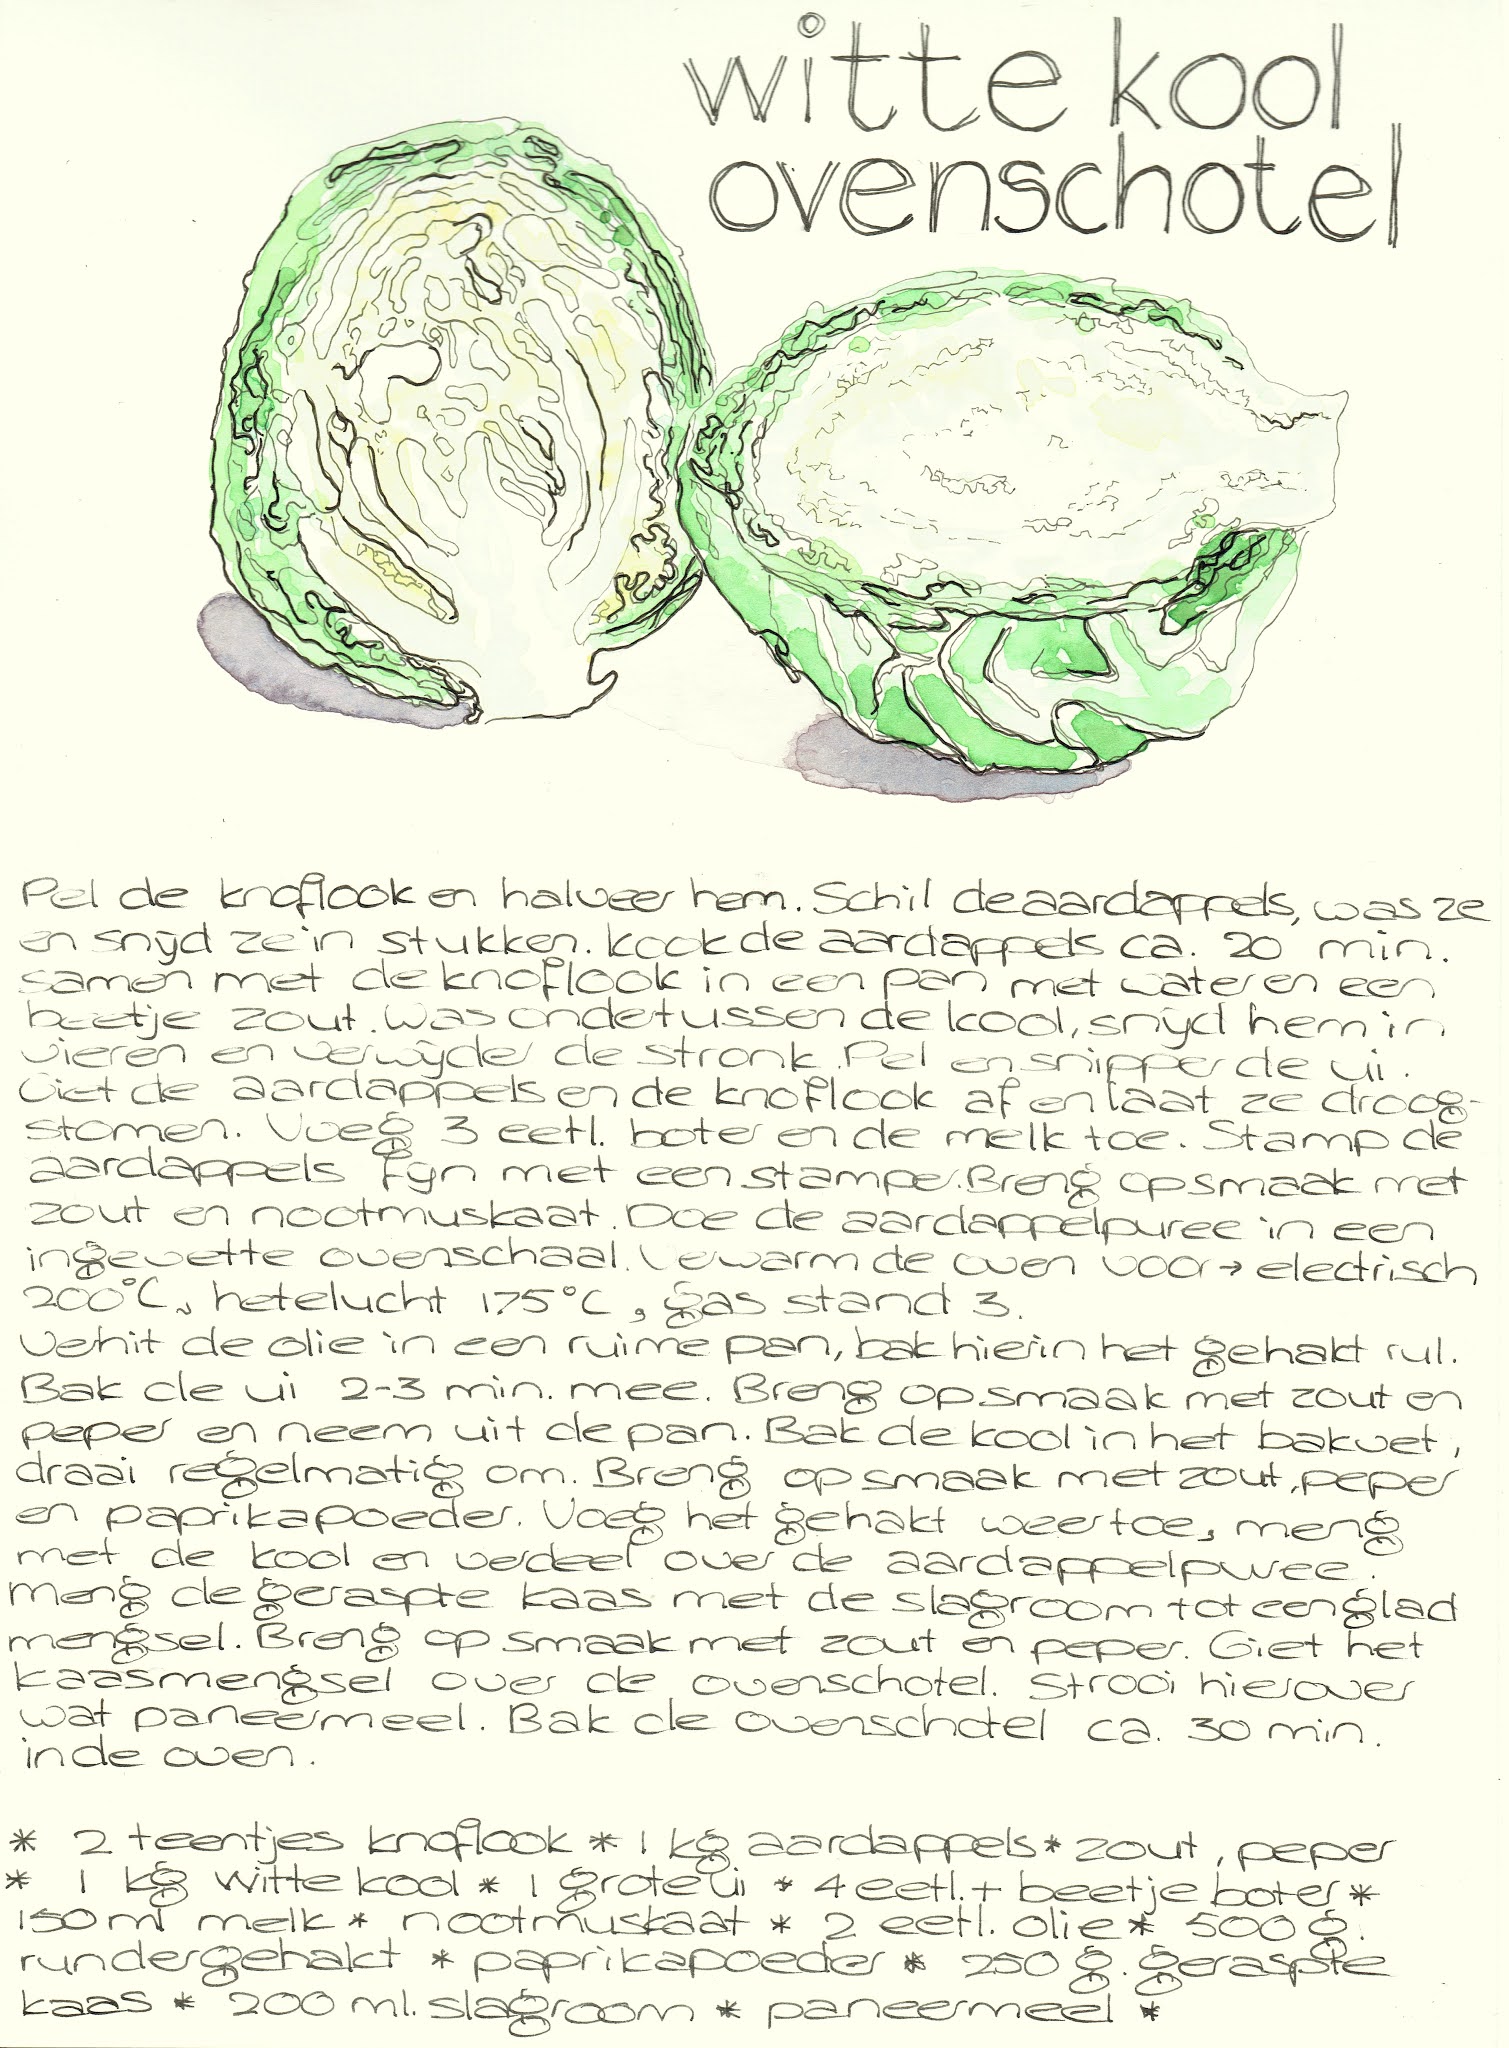 witte kool
ovenschotel
Pel de knoflook en halveer hem. Schil de aardappels, was ze
en snijd ze in stukken. Kook de aardappels ca. 20 min.
samen met de knoflook in een pan met water en een
beetje zout. Was ondertussen de kool, snijd hem in
vieren en verwijder de stronk. Pel en snipper de ui.
Giet de aardappels en de knoflook af en laat ze droog-
stomen. Voeg 3 eetl. boter en de melk toe. Stamp de
aardappels fijn met een stamper. Breng op smaak met
zout en nootmuskaat. Doe de aardappelpuree in een
ingevette ovenschaal. Verwarm de oven voor → electrisch
200°C, hetelucht 175°C, gas stand 3.
Verhit de olie in een ruime pan, bak hierin het gehakt rul.
Bak de ui 2-3 min. mee. Breng op smaak met zout en
peper en neem uit de pan. Bak de kool in het bakvet,
draai regelmatig om. Breng op smaak met zout, peper
en paprikapoeder. Voeg het gehakt weer toe, meng
met de kool en verdeel over de aardappelpuree.
Meng de geraspte kaas met de slagroom tot een glad
mengsel. Breng op smaak met zout en peper. Giet het
kaasmengsel over de ovenschotel. Strooi hierover
wat paneermeel. Bak de ovenschotel ca. 30 min.
in de oven.
* 2 teentjes knoflook * 1 kg aardappels * zout, peper
* 1 kg witte kool * 1 grote ui * 4 eetl. + beetje boter *
150 ml melk * nootmuskaat * 2 eetl. olie * 500 g.
rundergehakt * paprikapoeder * 250 g. geraspte
kaas * 200 ml. slagroom * paneermeel *